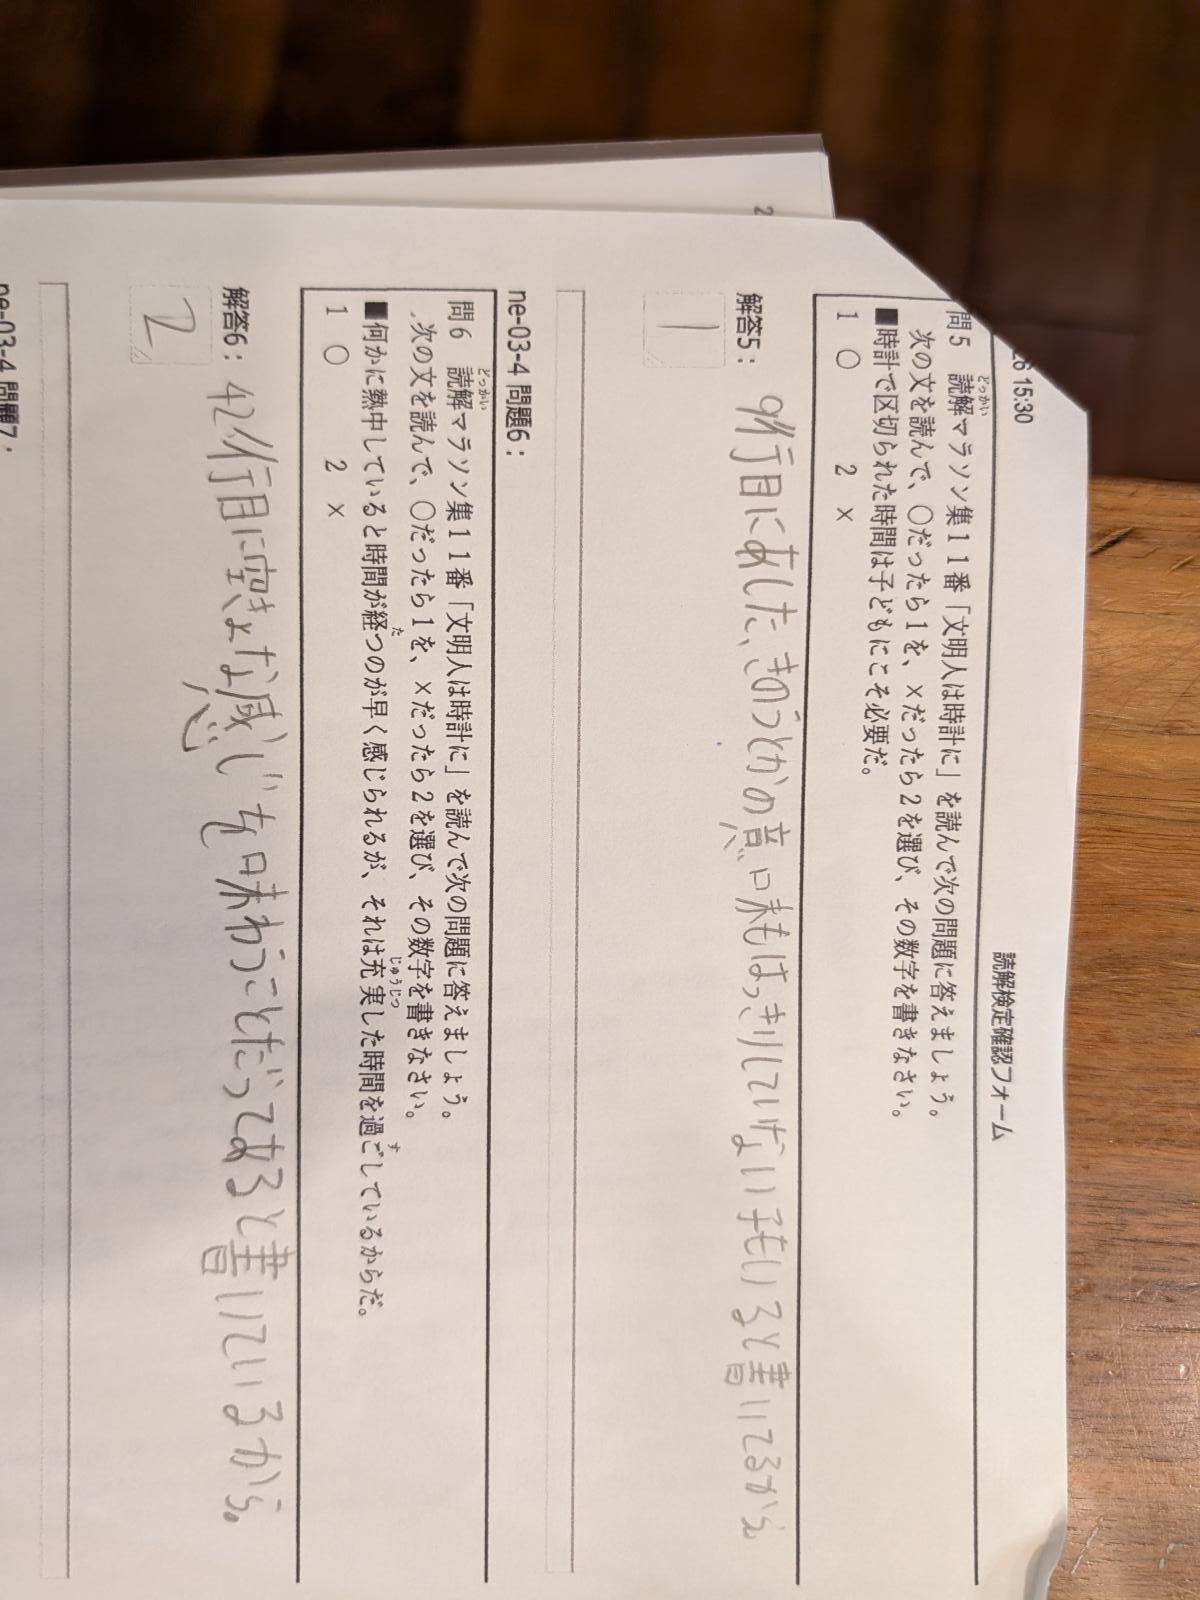 26 15:30
読解検定確認フォーム
問5 読解マラソン集11番「文明人は時計に」を読んで次の問題に答えましょう。
次の文を読んで、○だったら1を、×だったら2を選び、その数字を書きなさい。
■時計で区切られた時間は子どもにこそ必要だ。
1 ○ 2 ×
解答5: 9行目にあした、きのうとかの意味もはっきりしていない子もいると書いてるから
1
ne-03-4 問題6:
問6 読解マラソン集11番「文明人は時計に」を読んで次の問題に答えましょう。
次の文を読んで、○だったら1を、×だったら2を選び、その数字を書きなさい。
■何かに熱中していると時間が経つのが早く感じられるが、それは充実した時間を過ごしているからだ。
1 ○ 2 ×
解答6: 42行目に空きょな感じを味わうことだってあると書いているから。
2
ne-03-4 問題7: